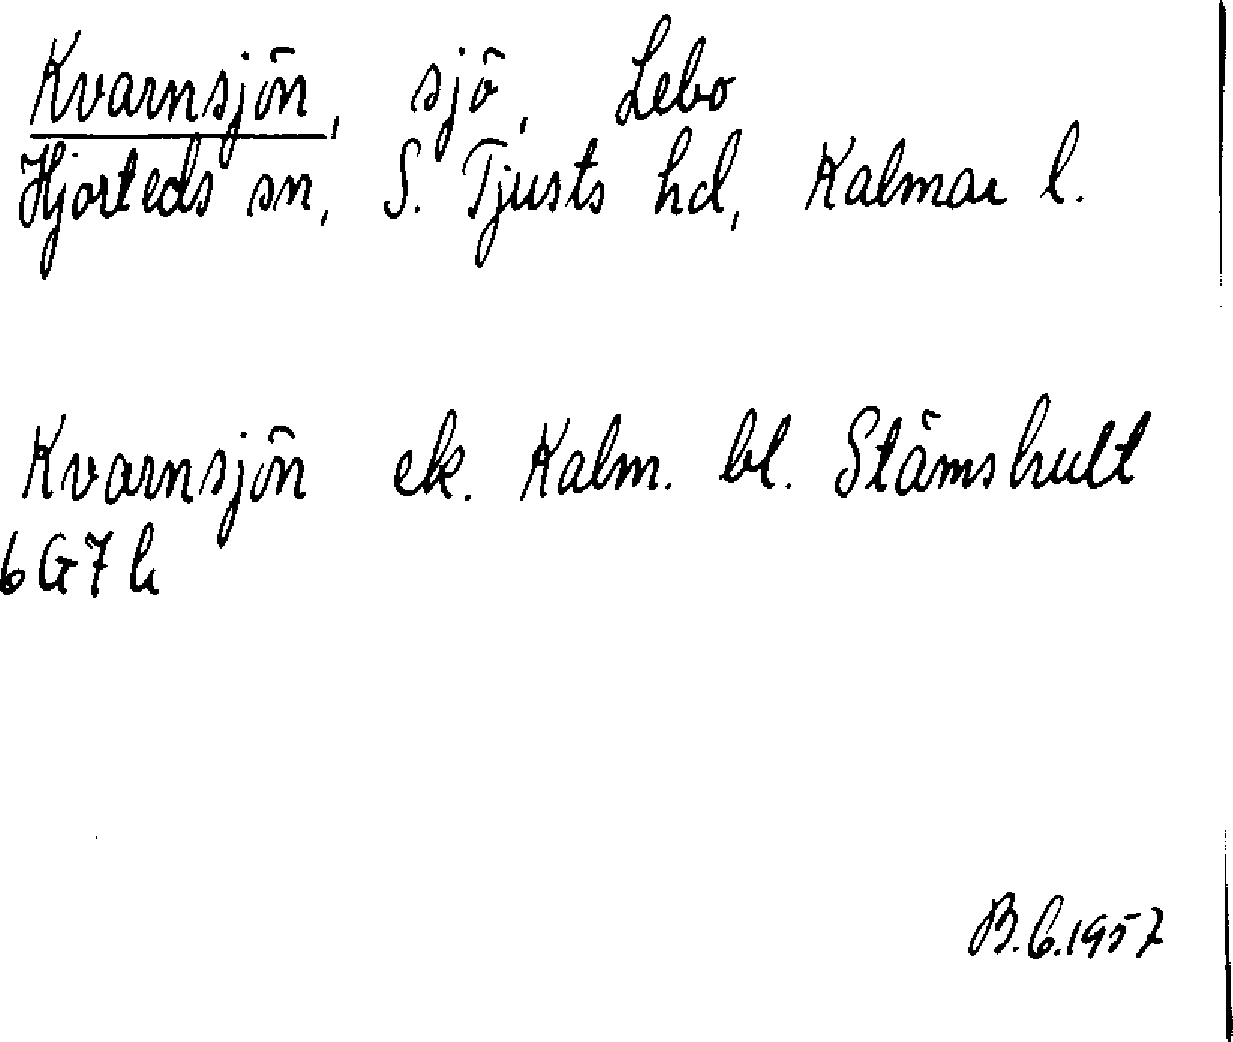 Kvarnsjön, sjö, Lebo
Hjorteds sn, S. Tjusts hd, Kalmar l.
Kvarnsjön ek. Kalm. bl. Stämshult
6G7h
B.G.1957